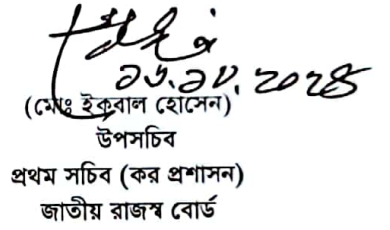 (মোঃ ইকবাল হোসেন)
উপসচিব
প্রথম সচিব (কর প্রশাসন)
জাতীয় রাজস্ব বোর্ড